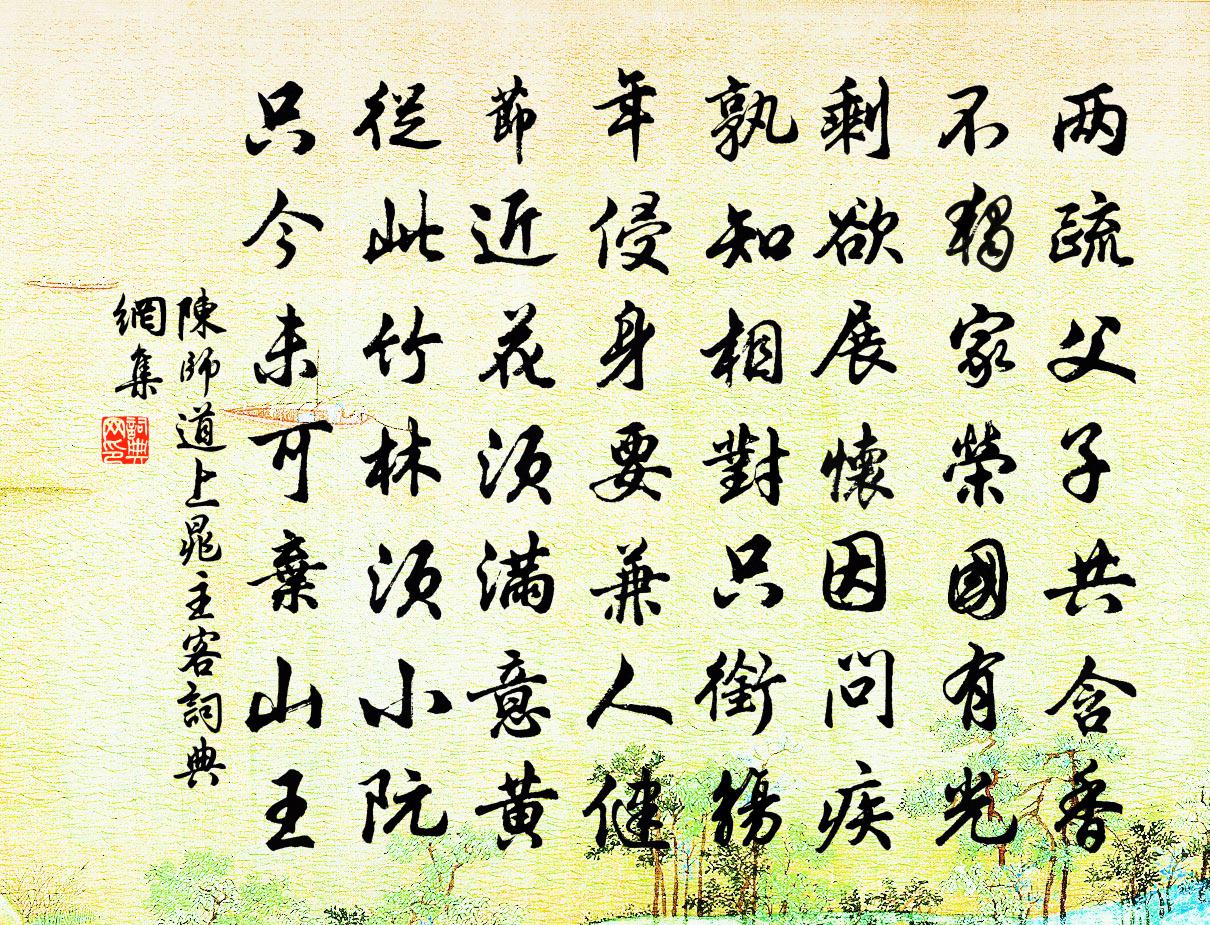 两疏父子共含香
不獨家榮國有光
剩欲展懷因問疾
孰知相對只銜觴
年侵身要兼人健
節近花須滿意黃
從此竹林須小阮
只今未可棄山王
陳師道上晁主客詞典
網集
詞典網印